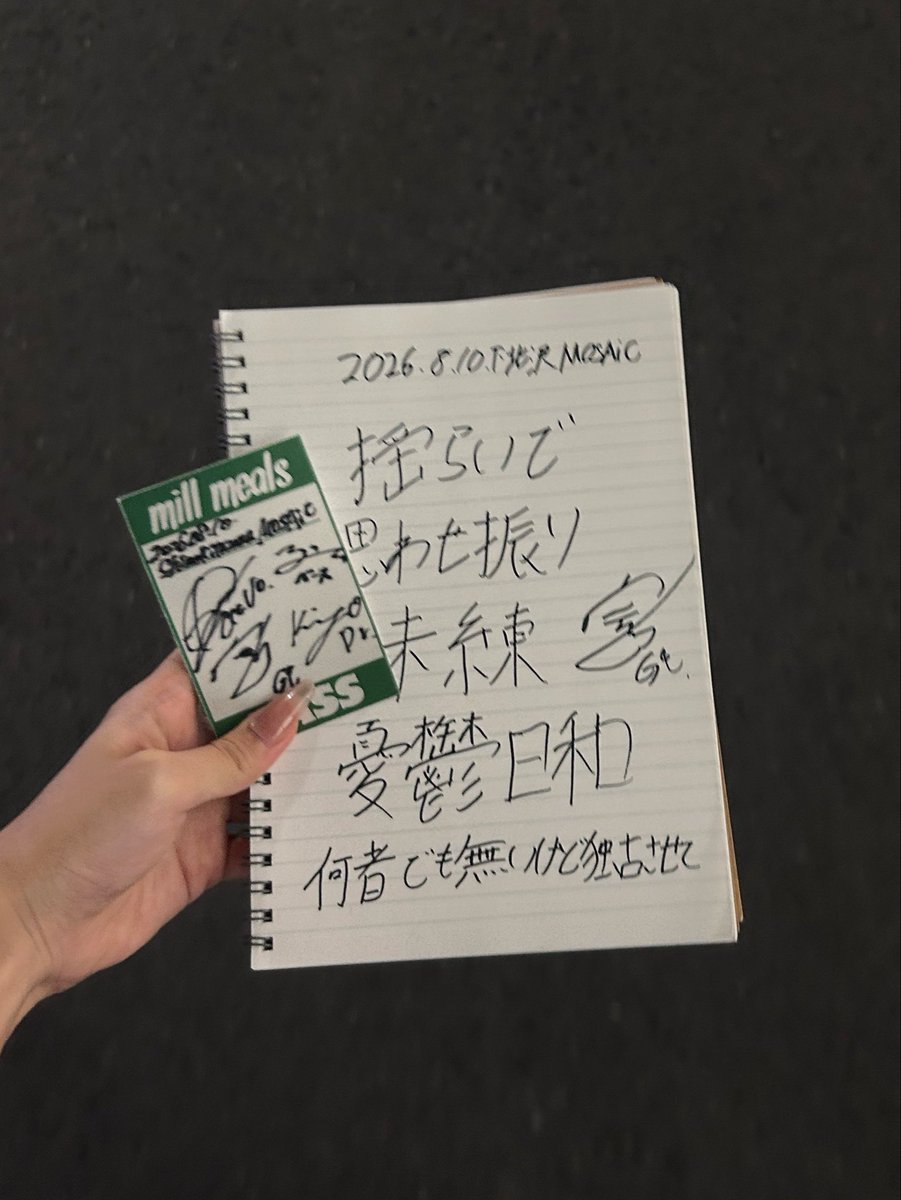 mill meals
2026.08.10
Shimokitazawa MOSAiC
Vo.
Gt.
Dr.
ASS
2026.8.10.下北沢MOSAiC
揺らいで
思わせ振り
未練
Gt.
憂鬱日和
何者でも無いけど独占させて